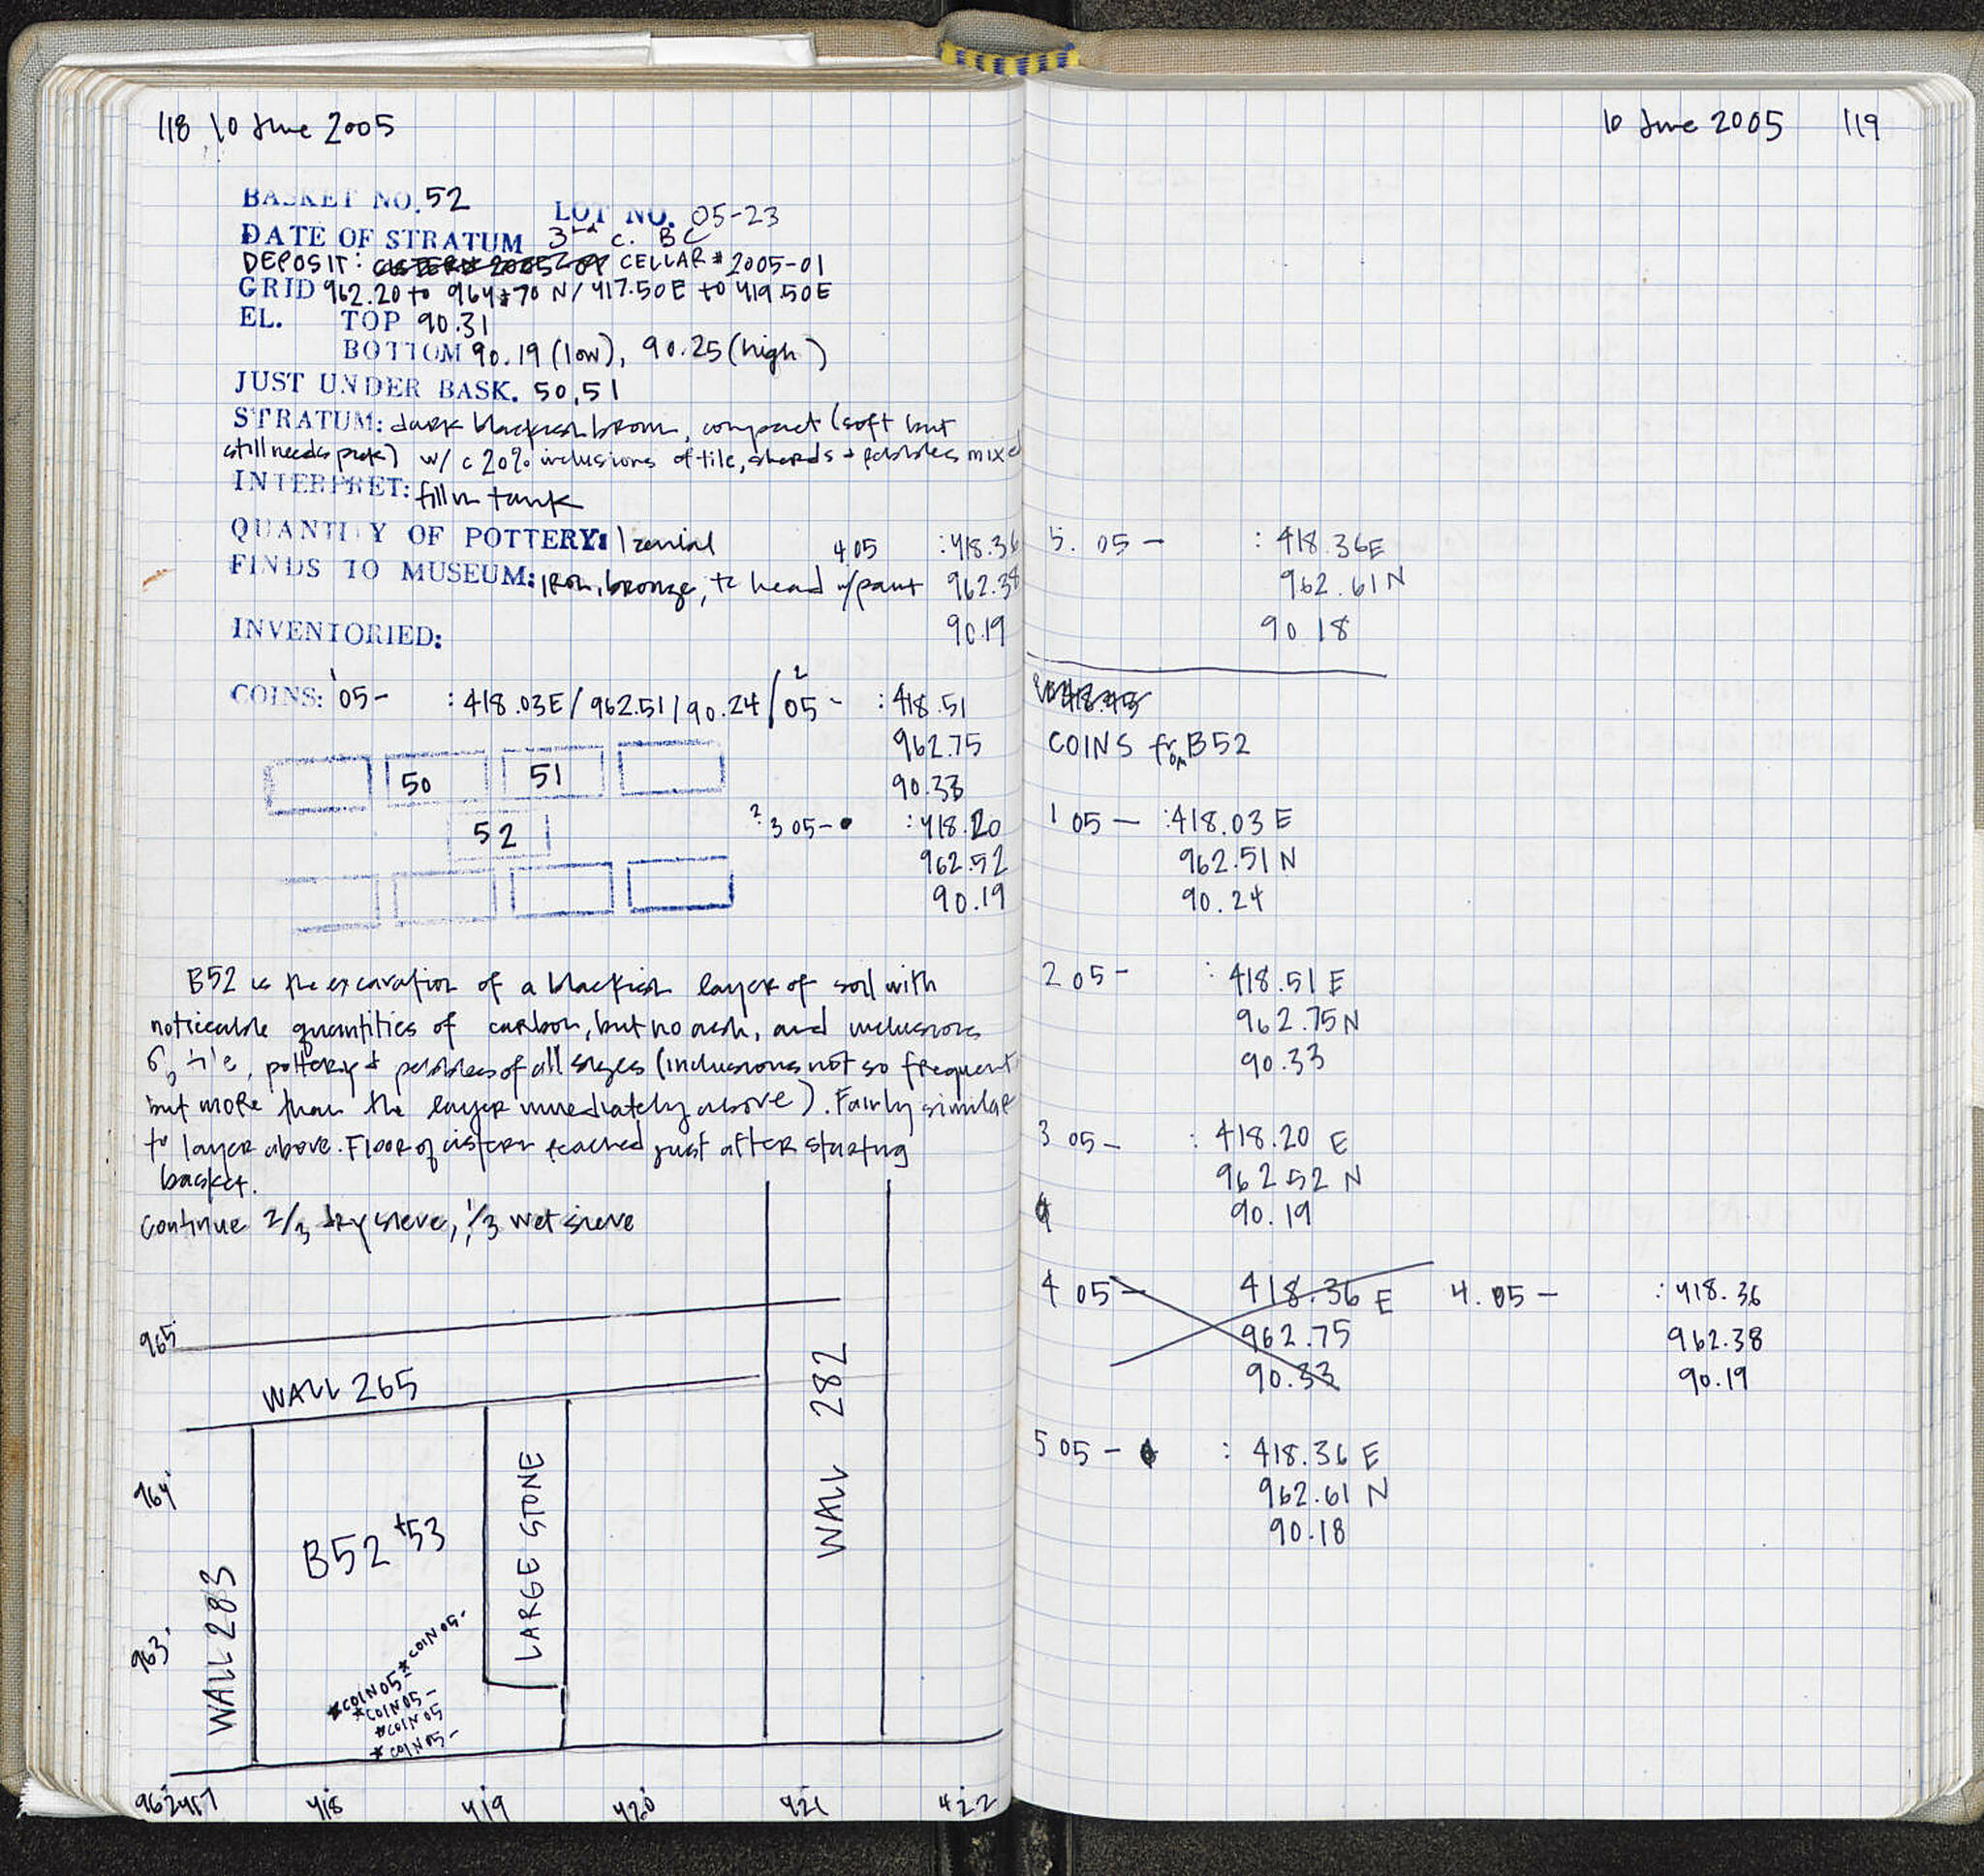 118 10 June 2005
BASKET NO. 52
LOT NO. 05-23
DATE OF STRATUM 3rd c. BC
DEPOSIT: CELLAR # 2005-01
GRID 962.20 to 964.70 N/ 417.50E to 419.50E
EL. TOP 90.31
BOTTOM 90.19 (low), 90.25 (high)
JUST UNDER BASK. 50,51
STRATUM: dark blackish brown, compact (soft but
still needs pick) w/ c 20% inclusions of tile, sherds + pebbles mixed
INTERPRET: fill in tank
QUANTITY OF POTTERY: 1 zembil
FINDS TO MUSEUM: iron, bronze, tc head w/paint
4 05 :418.36
962.38
90.19
INVENTORIED:
COINS: 1 05- :418.03E/962.51/90.24/ 2 05- :418.51
962.75
90.33
50 51
52
3 05- :418.20
962.52
90.19
B52 is the excavation of a blackish layer of soil with
noticeable quantities of carbon, but no ash, and inclusions
of tile, pottery + pebbles of all sizes (inclusions not so frequent
but more than the layer immediately above). Fairly similar
to layer above. Floor of cistern reached just after starting
basket.
Continue 2/3 dry sieve, 1/3 wet sieve
965
WALL 265
WALL 282
964
B52 +53
LARGE STONE
963
WALL 283
*COIN 05-
*COIN 05-
*COIN 05-
*COIN 05
*COIN 05-
962 417 418 419 420 421 422
10 June 2005 119
5. 05- : 418.36E
962.61N
90.18
COINS from B52
1 05- :418.03 E
962.51 N
90.24
2 05- : 418.51 E
962.75N
90.33
3 05- : 418.20 E
962 52 N
90.19
4 05- 418.36 E
962.75
90.33
4. 05- :418.36
962.38
90.19
5 05- : 418.36 E
962.61 N
90.18